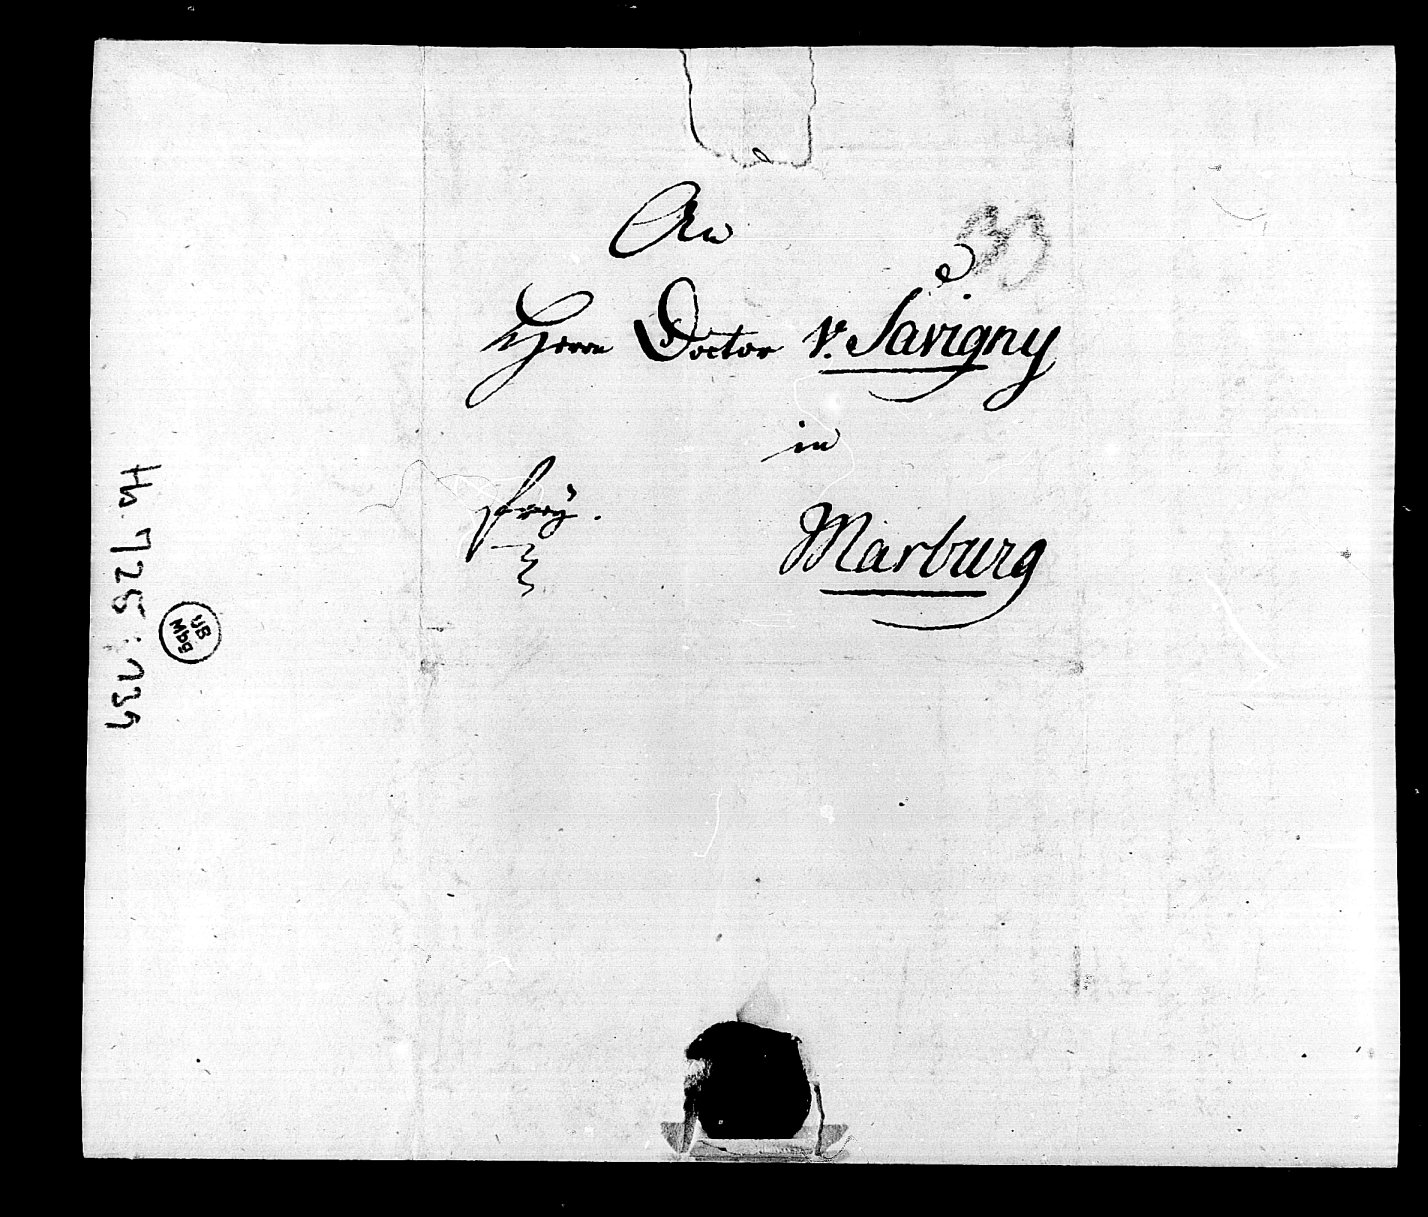 An
Herrn Doctor v. Savigny
in
frey.
Marburg
Hs. 725: 139
UB
Mbg